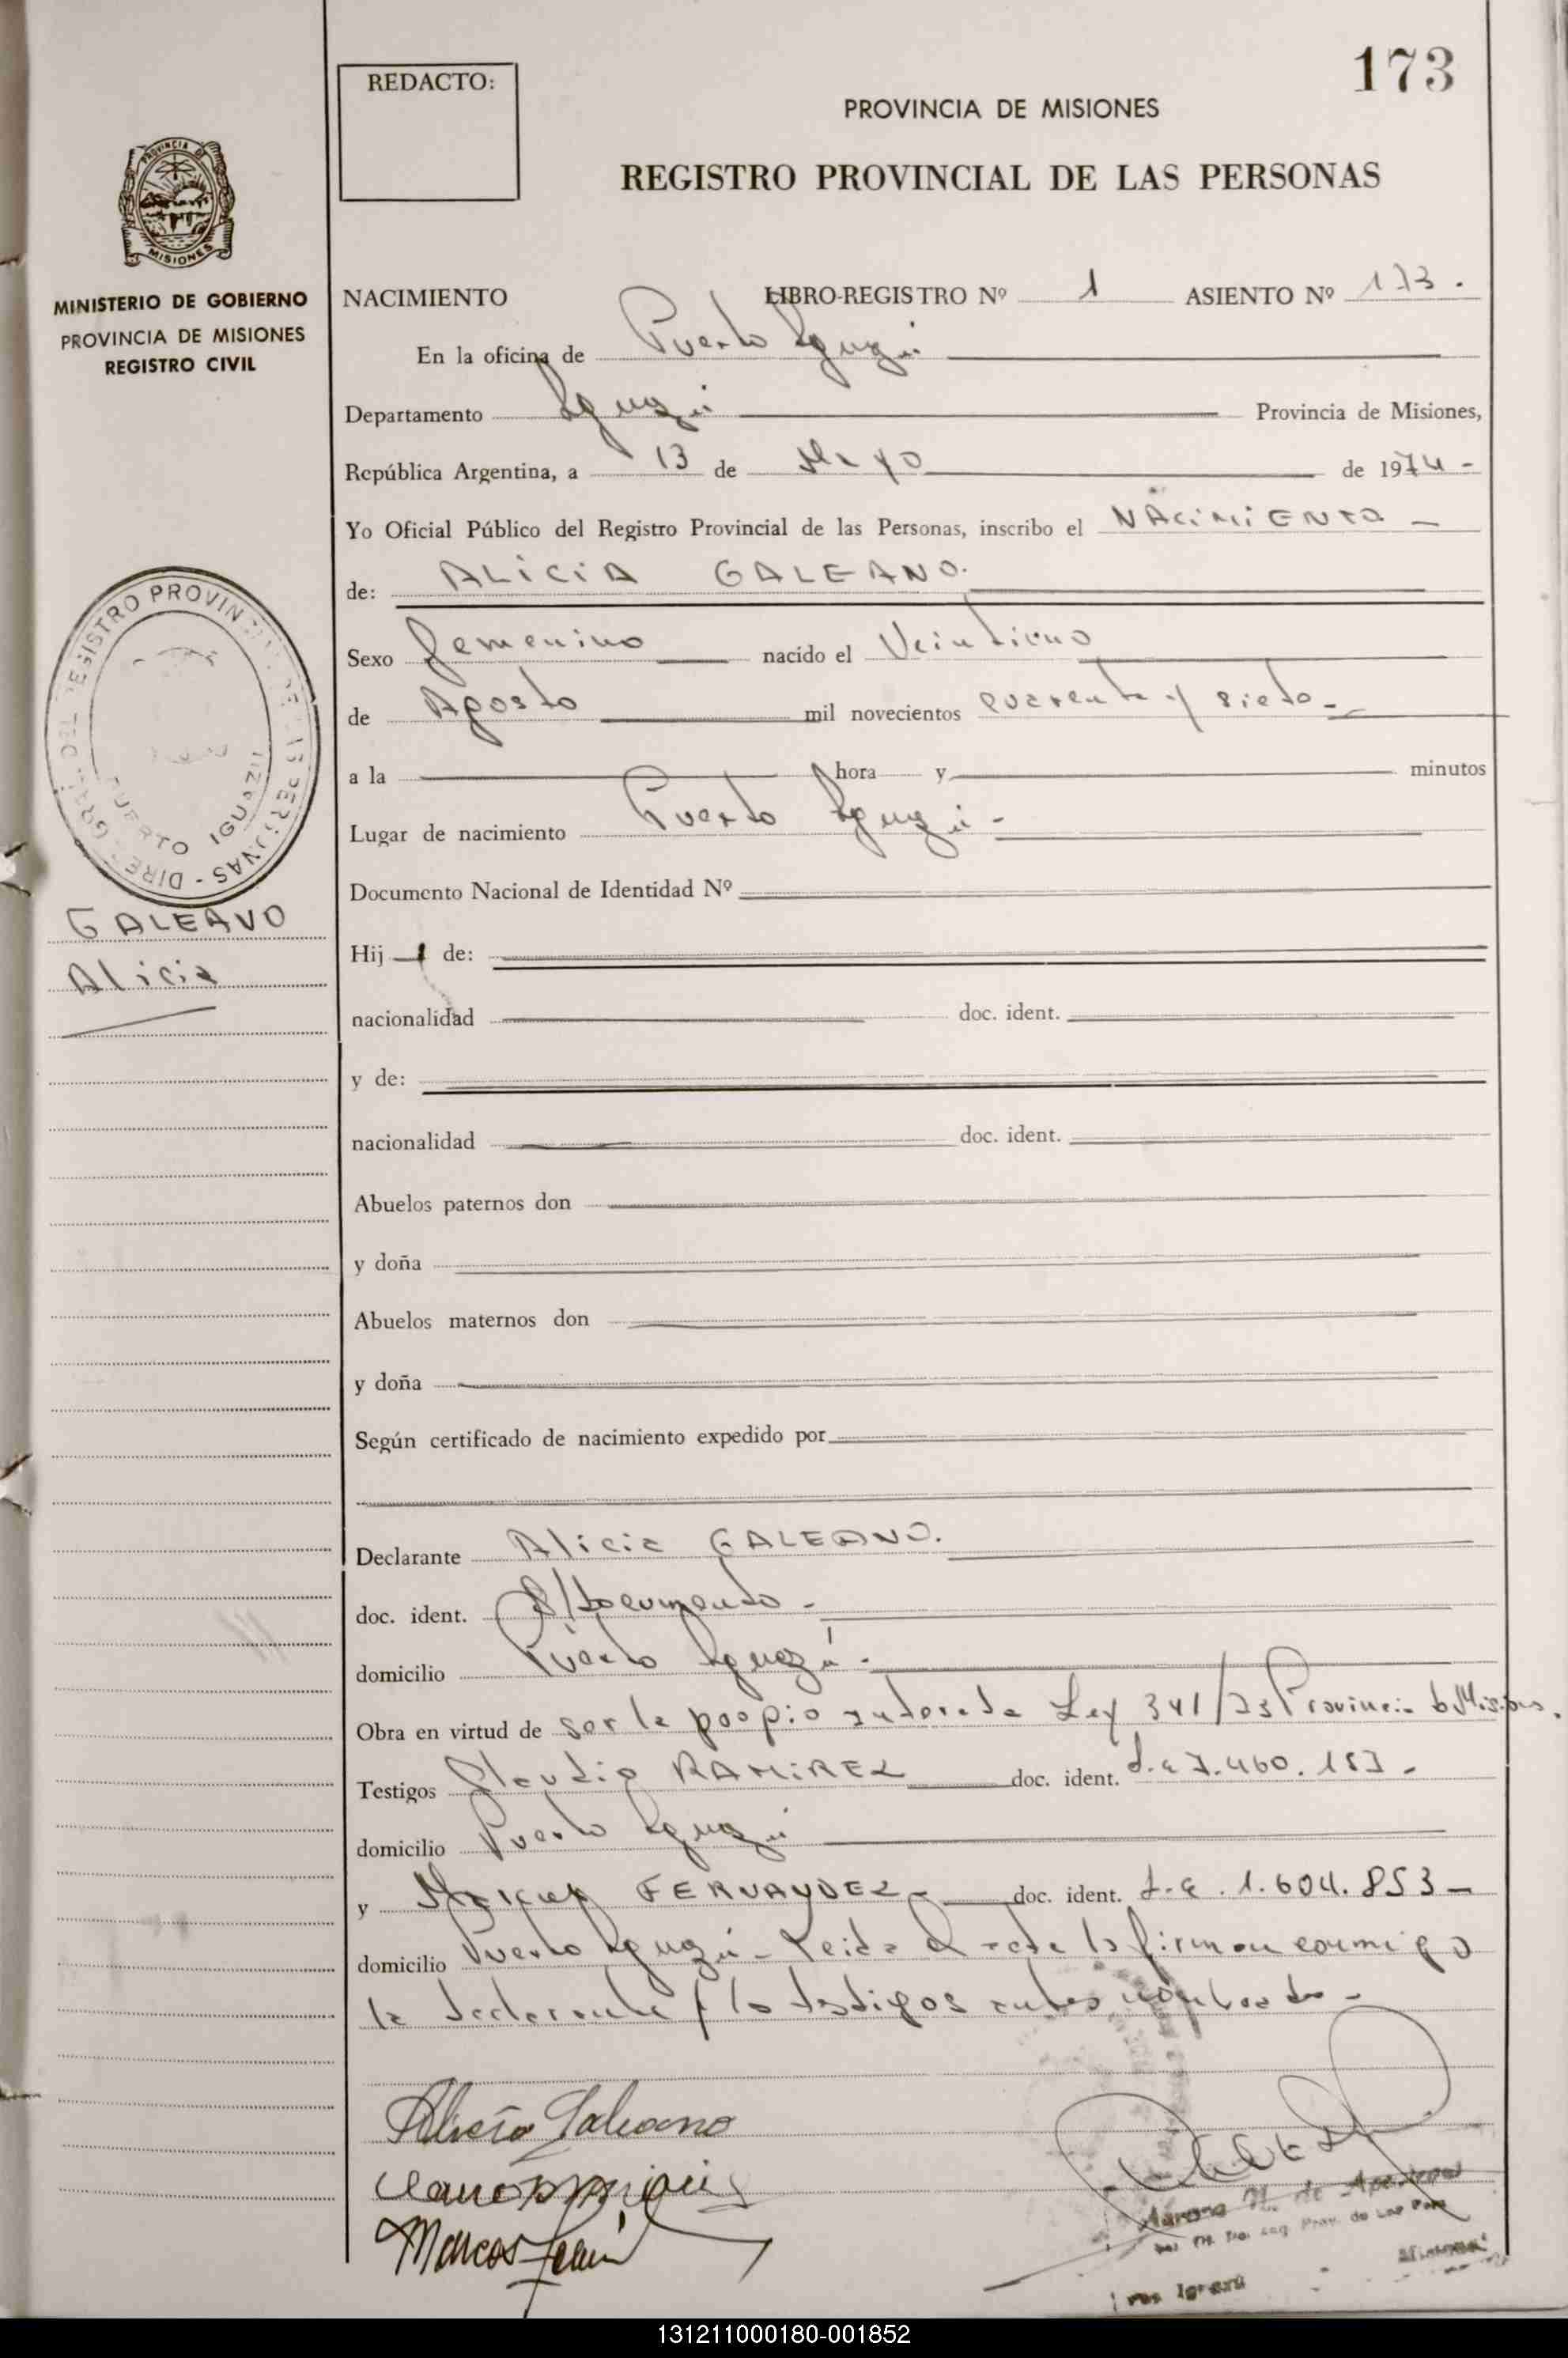 173
REDACTO:
PROVINCIA DE MISIONES
REGISTRO PROVINCIAL DE LAS PERSONAS
PROVINCIA DE
MISIONES
MINISTERIO DE GOBIERNO
PROVINCIA DE MISIONES
REGISTRO CIVIL
NACIMIENTO LIBRO-REGISTRO Nº 1 ASIENTO Nº 173.
En la oficina de Puerto Iguazú
Departamento Iguazú Provincia de Misiones,
República Argentina, a 13 de Mayo de 1974-
Yo Oficial Público del Registro Provincial de las Personas, inscribo el NACIMIENTO -
de: ALICIA GALEANO.
Sexo Femenino nacido el Veintiuno
de Agosto mil novecientos cuarenta y siete-
a la hora y minutos
Lugar de nacimiento Puerto Iguazú -
Documento Nacional de Identidad Nº
PUERTO IGUAZU
GALEANO
Alicia
Hij de:
nacionalidad doc. ident.
y de:
nacionalidad doc. ident.
Abuelos paternos don
y doña
Abuelos maternos don
y doña
Según certificado de nacimiento expedido por
Declarante Alicia GALEANO.
doc. ident. S/documento -
domicilio Puerto Iguazú.
Obra en virtud de ser la propio Ley 341/73 Provincia
Testigos RAMIREZ doc. ident. 7.460.157-
domicilio Puerto Iguazú
y FERNANDEZ- doc. ident. 1.604.853-
domicilio Puerto Iguazú - Leida el acta la firman conmigo
la declarante y los testigos antes nombrados -
Alicia Galeano
Marcos
131211000180-001852